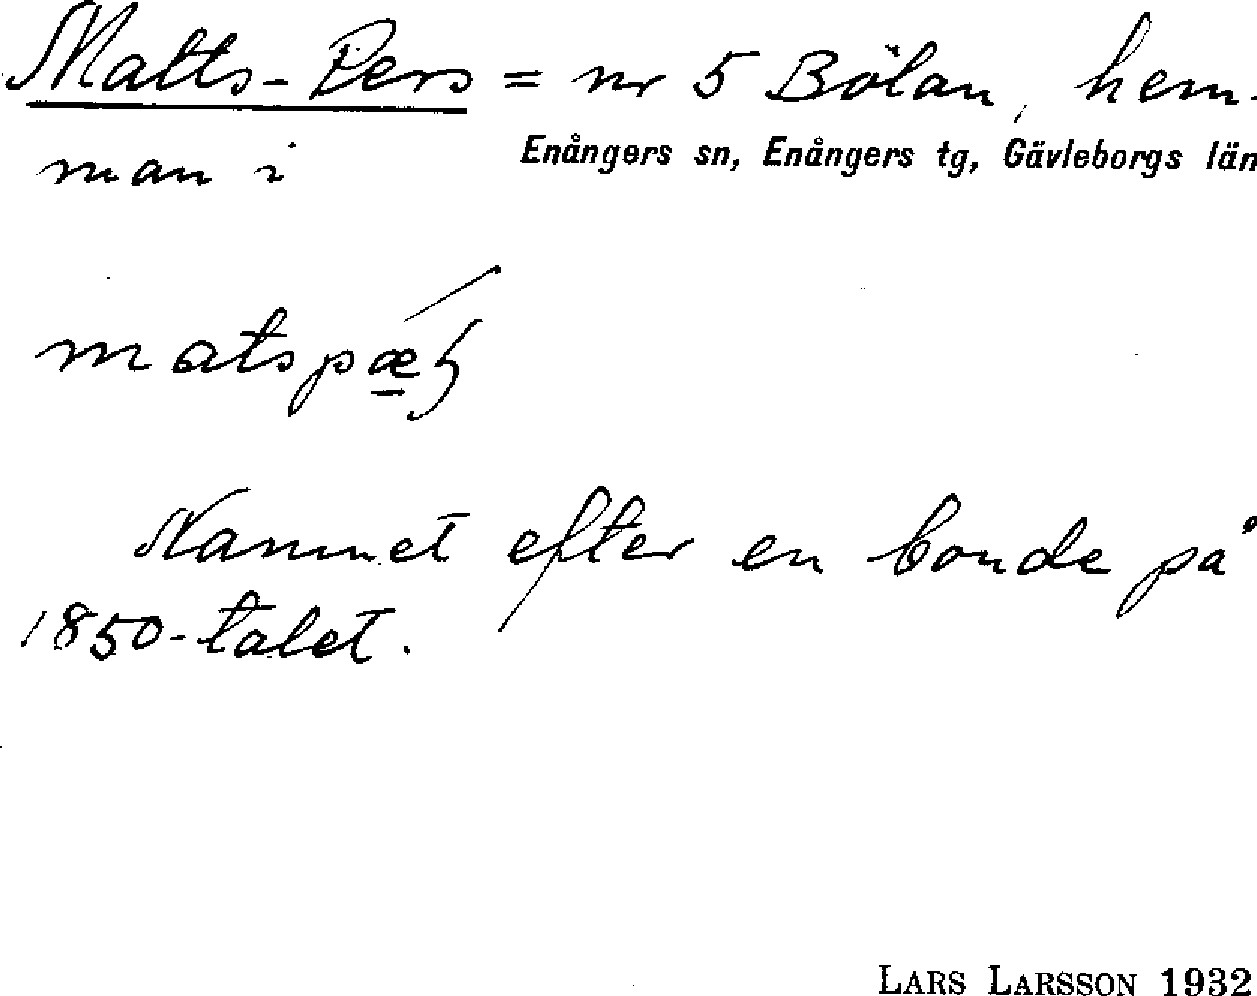 Matts-Pers = nr 5 Bölan, hem-
man i Enångers sn, Enångers tg, Gävleborgs län
Namnet efter en bonde på
1850-talet.
LARS LARSSON 1932